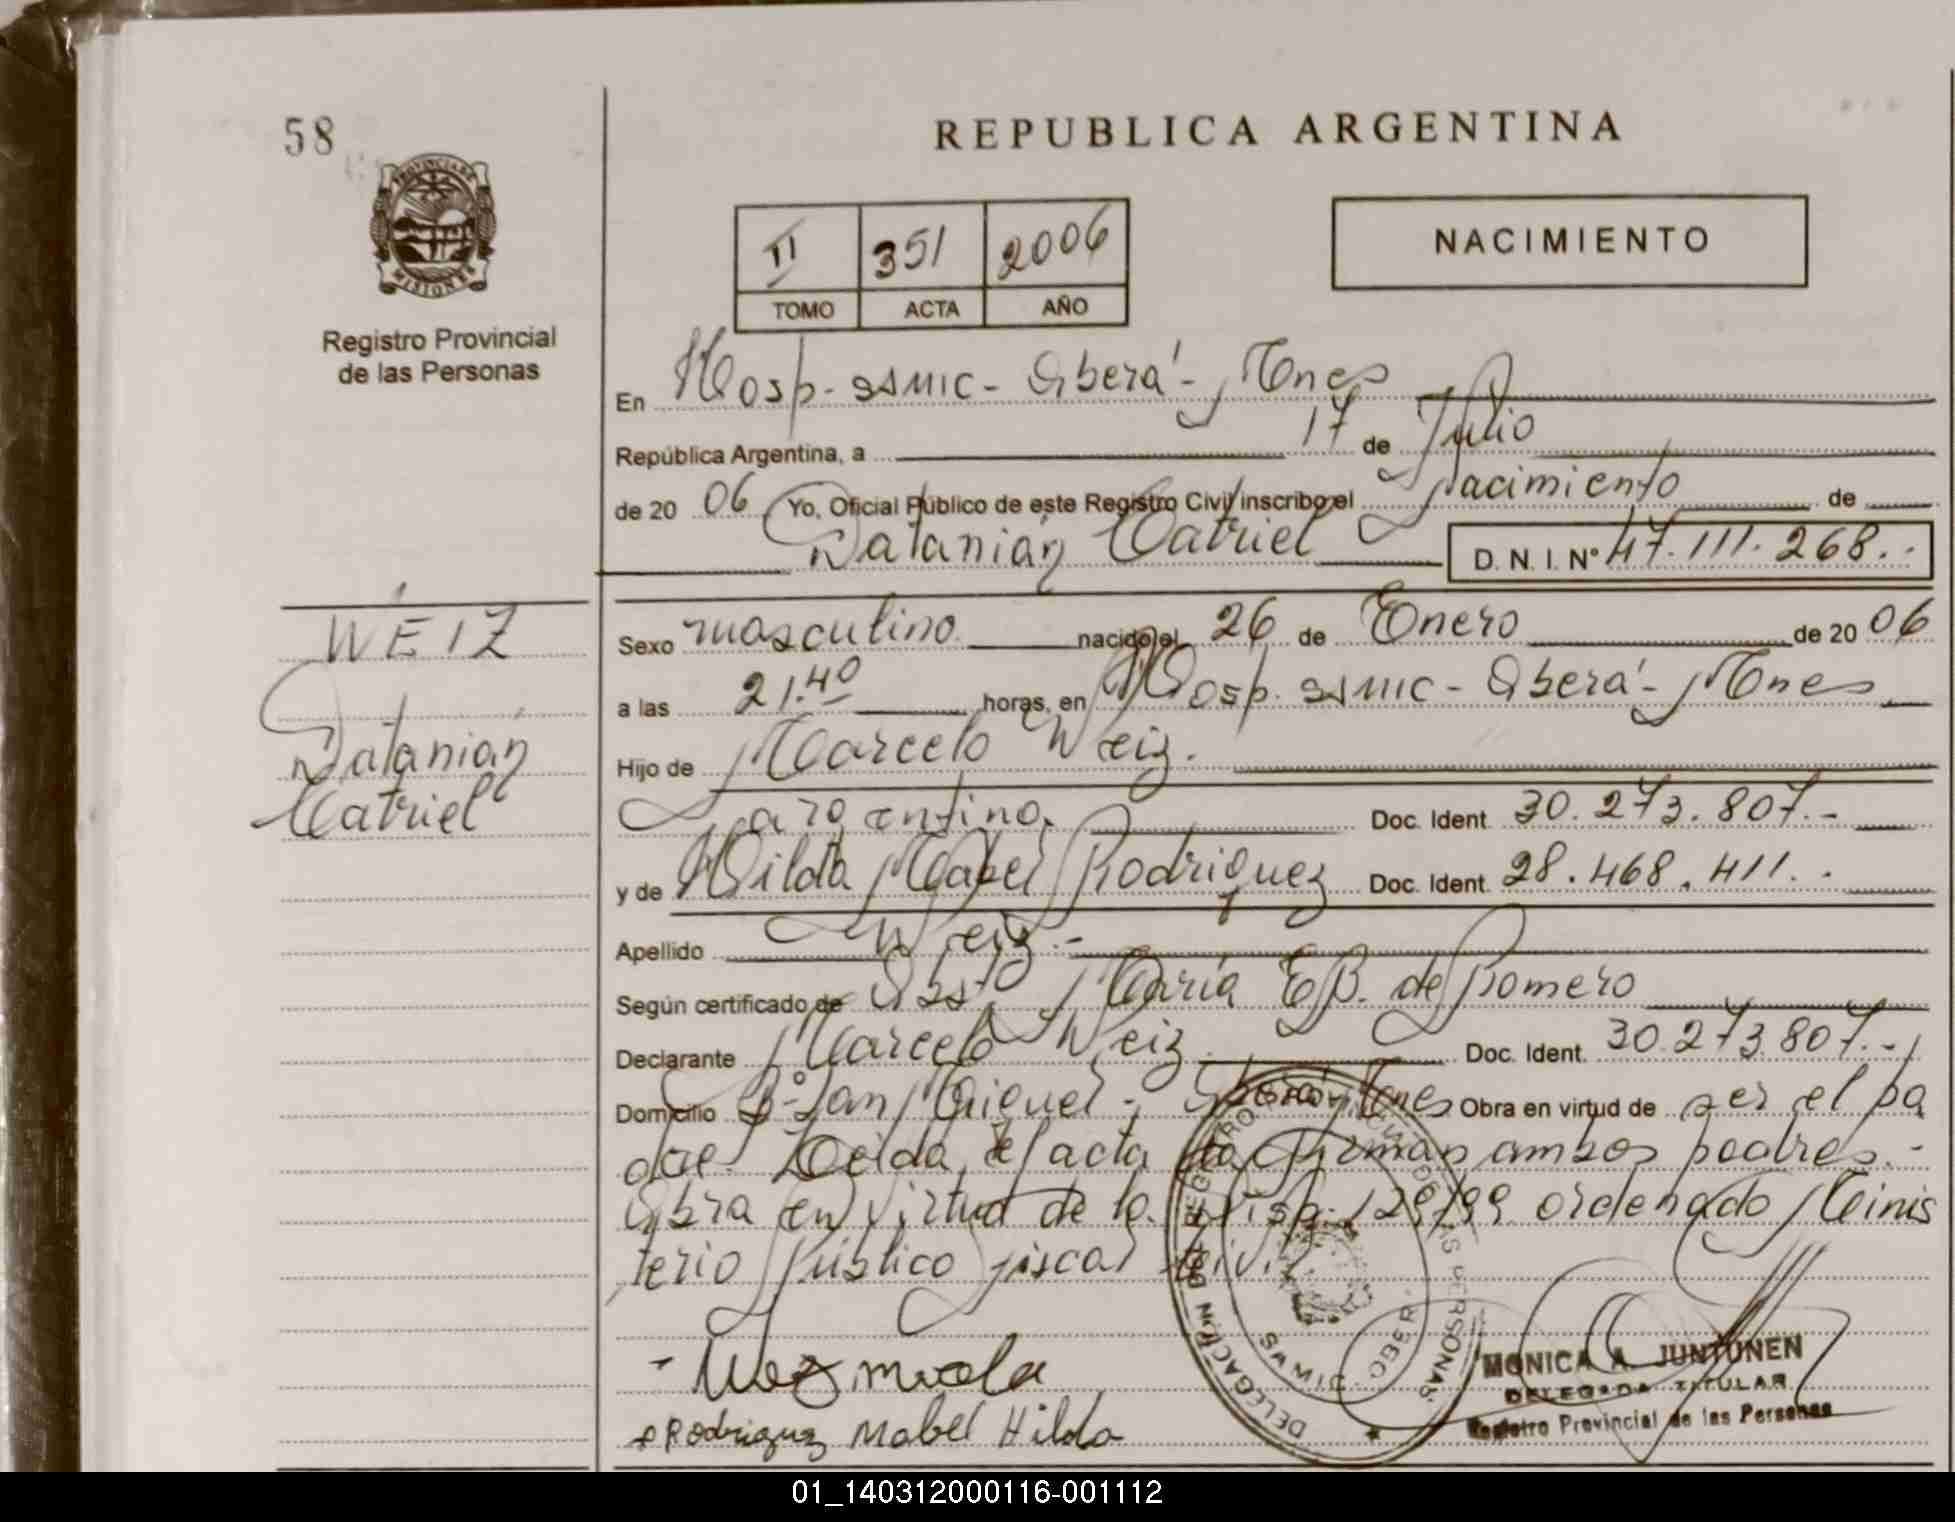 58
REPUBLICA ARGENTINA
PROVINCIA DE
MISIONES
Registro Provincial
de las Personas
II 351 2006
TOMO ACTA AÑO
NACIMIENTO
En Hosp. SAMIC - Oberá - Mnes
República Argentina, a 17 de Julio
de 20 06 Yo, Oficial Público de este Registro Civil inscribo el Nacimiento de
Natanián Catriel D. N. I. Nº 47.111.268.-
WEIZ
Natanián
Catriel
Sexo masculino nacido el 26 de Enero de 20 06
a las 21.40 horas, en Hosp. SAMIC - Oberá - Mnes
Hijo de Marcelo Weiz.
argentino. Doc. Ident. 30.273.807.-
y de Hilda Mabel Rodriguez Doc. Ident. 28.468.411.-
Apellido Weiz.-
Según certificado de Obst. María E B. de Romero
Declarante Marcelo Weiz. Doc. Ident. 30.273.807.-
Domicilio Bº San Miguel - Oberá Mnes Obra en virtud de ser el pa
dre. Leída el acta la firman ambos padres.-
Obra en virtud de la Disp. 129/99 ordenado Minis
terio Público fiscal Civil.
Rodriguez Mabel Hilda
DELEGACIÓN DEL REGISTRO PROVINCIAL DE LAS PERSONAS
SAMIC OBERA
MONICA A. JUNTUNEN
DELEGADA TITULAR
Registro Provincial de las Personas
01_140312000116-001112